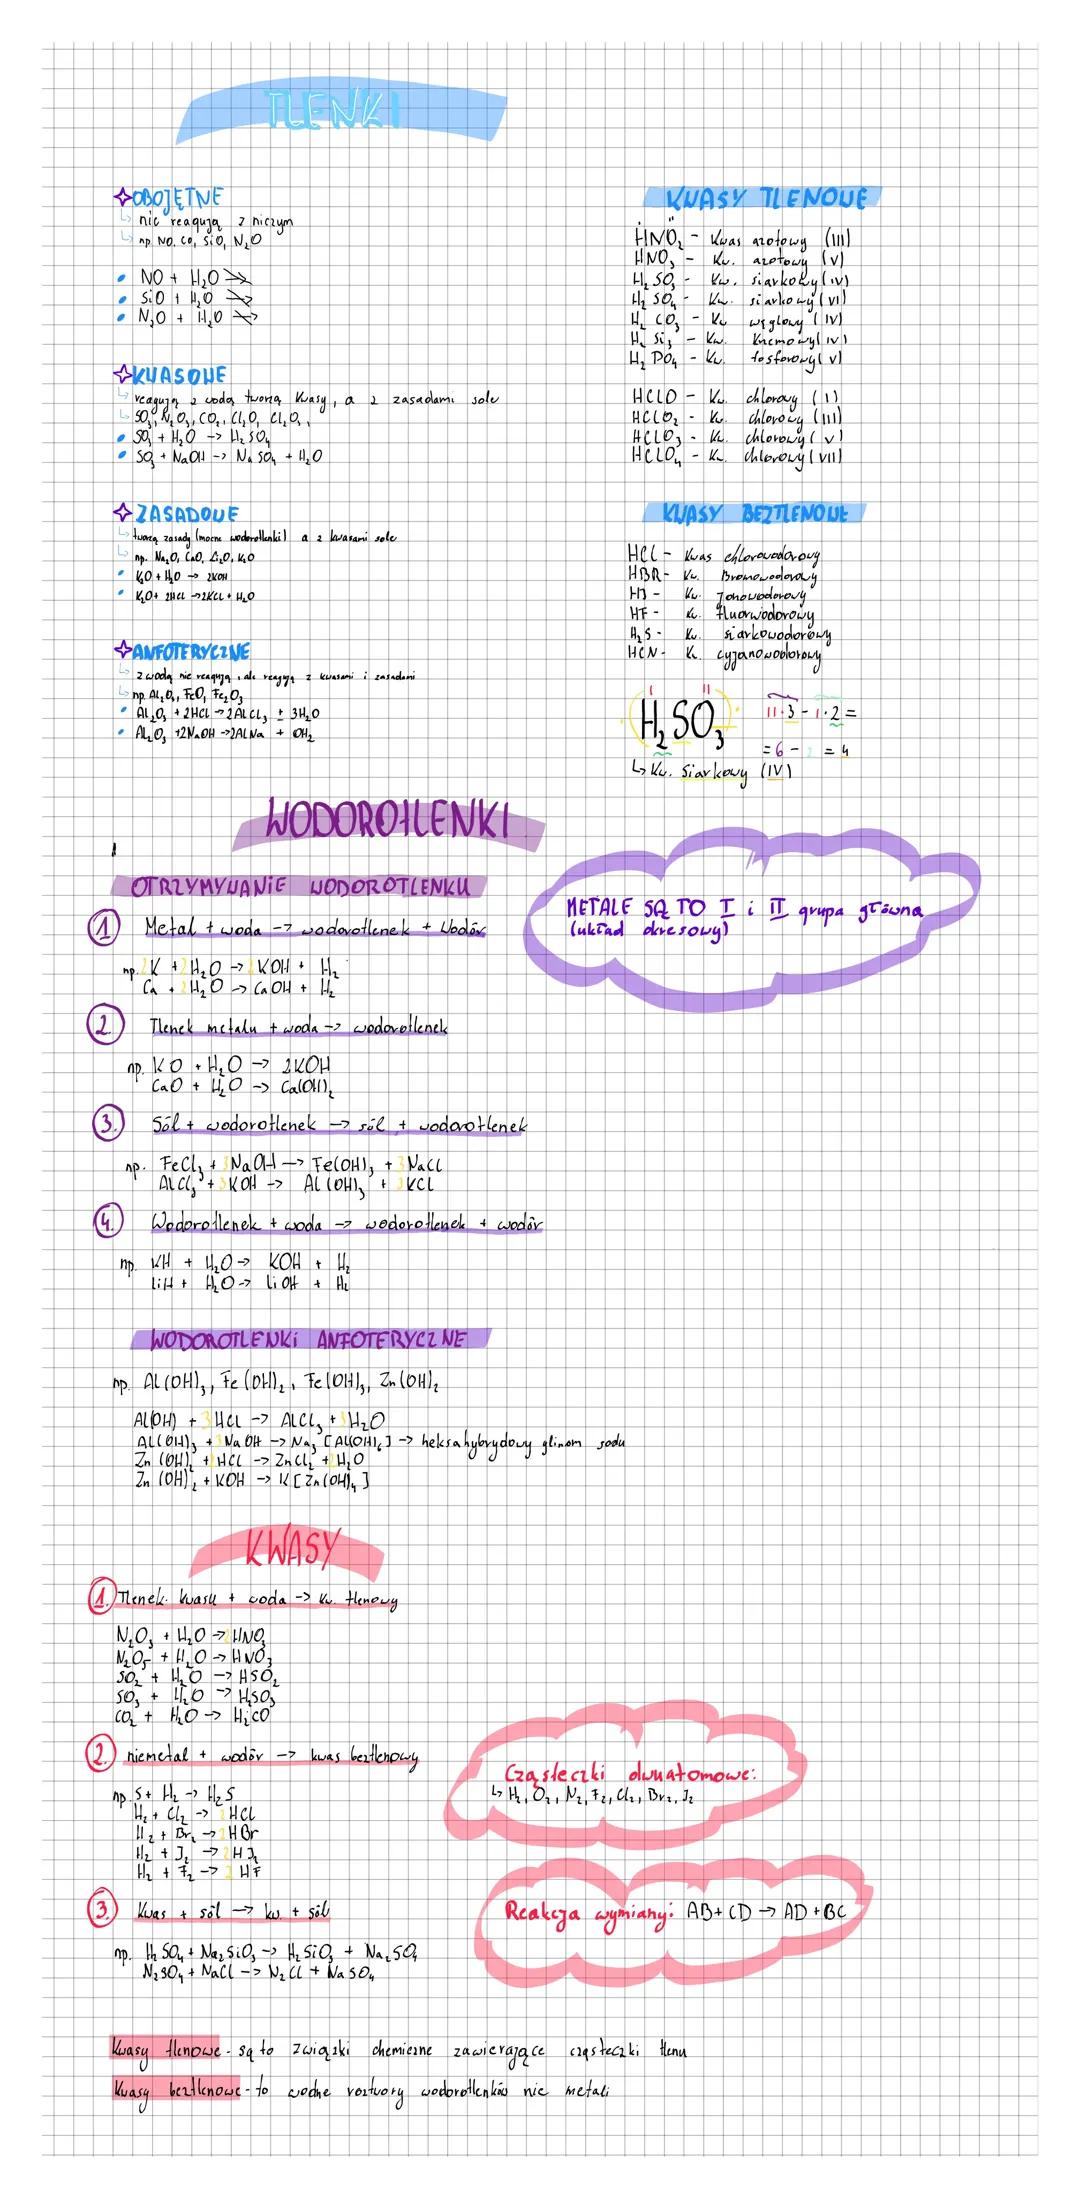 TLENKI
OBOJĘTNE
nic reagują z niczym
np. NO, CO, SiO, N₂O
NO + H₂O
SiO + H₂O
N₂O + H₂O
KWASOWE
reagują z wodą tworzą kwasy, a z zasadami sole
SO₃, N₂O₃, CO₂, Cl₂O, Cl₂O,
SO₃ + H₂O -> H₂SO₄
SO₃ + NaOH -> Na SO₄ + H₂O
ZASADOWE
tworzą zasady (mocne wodorotlenki) a z kwasami sole
np. Na₂O, CaO, Li₂O, K₂O
K₂O + H₂O -> 2KOH
K₂O + 2HCL -> 2KCL + H₂O
ANFOTERYCZNE
z wodą nie reagują, ale reagują z kwasami i zasadami
np. AL₂O₃, FeO, Fe₂O₃
AL₂O₃ + 2HCL -> 2ALCL₃ + 3H₂O
AL₂O₃ +2NaOH ->2ALNa + OH₂
KWASY TLENOWE
HNO₂ - Kwas azotowy (III)
HNO₃ - Kw. azotowy (V)
H₂SO₃ - Kw. siarkowy (IV)
H₂SO₄ - Kw. siarkowy (VI)
H₂CO₃ - Kw węglowy (IV)
H₂Si₃ - Kw. Krzemowy (IV)
H₂PO₄ - Kw. fosforowy (V)
HCLO - Kw. chlorowy (I)
HCLO₂ - Kw. chlorowy (III)
HCLO₃ - Kw. chlorowy (V)
HCLO₄ - Kw. chlorowy (VII)
KWASY BEZTLENOWE
HCL - Kwas chlorowodorowy
HBR - Kw. Bromowodorowy
HJ - Kw. Jonowodorowy
HF - Kw. fluorwodorowy
H₂S - Kw. siarkowodorowy
HCN - K. cyjanowodorowy
I II
H₂SO₃
II·3 - I·2 =
= 6 - 2 = 4
Kw. Siarkowy (IV)
WODOROTLENKI
OTRZYMYWANIE WODOROTLENKU
1 Metal + woda -> wodorotlenek + Wodór
np. 2K + 2H₂O -> 2KOH + H₂
Ca + 2H₂O -> CaOH + H₂
METALE SĄ TO I i II grupa główna
(układ okresowy)
2. Tlenek metalu + woda -> wodorotlenek
np. KO + H₂O -> 2KOH
CaO + H₂O -> Ca(OH)₂
3. Sól + wodorotlenek -> sól + wodorotlenek
np. FeCl₃ + 3NaOH -> Fe(OH)₃ + 3NaCl
ALCL₃ + 3KOH -> AL(OH)₃ + 3KCL
4. Wodorotlenek + woda -> wodorotlenek + wodór
np. KH + H₂O -> KOH + H₂
LiH + H₂O -> LiOH + H₂
WODOROTLENKI ANFOTERYCZNE
np. AL(OH)₃, Fe(OH)₂, Fe(OH)₃, Zn(OH)₂
AL(OH) + 3HCL -> ALCL₃ + 3H₂O
AL(OH)₃ + 3NaOH -> Na₃[AL(OH)₆] -> heksahybrydowy glinom sodu
Zn(OH)₂ + 2HCL -> ZnCL₂ + 2H₂O
Zn(OH)₂ + KOH -> K[Zn(OH)₄]
KWASY
1. Tlenek kwasu + woda -> kw. tlenowy
N₂O₃ + H₂O -> 2HNO₃
N₂O₅ + H₂O -> HNO₃
SO₂ + H₂O -> HSO₂
SO₃ + H₂O -> H₂SO₃
CO₂ + H₂O -> H₂CO
2. niemetal + wodór -> kwas beztlenowy
np. S + H₂ -> H₂S
H₂ + Cl₂ -> 2HCl
H₂ + Br₂ -> 2HBr
H₂ + J₂ -> 2HJ₂
H₂ + F₂ -> 2HF
Cząsteczki dwuatomowe:
H₂, O₂, N₂, F₂, Cl₂, Br₂, J₂
3. Kwas + sól -> kw. + sól
np. H₂SO₄ + Na₂SiO₃ -> H₂SiO₃ + Na₂SO₄
N₂SO₄ + NaCl -> N₂Cl + NaSO₄
Reakcja wymiany: AB + CD -> AD + BC
Kwasy tlenowe - są to związki chemiczne zawierające cząsteczki tlenu
Kwasy beztlenowe - to wodne roztwory wodorotlenków nie metali